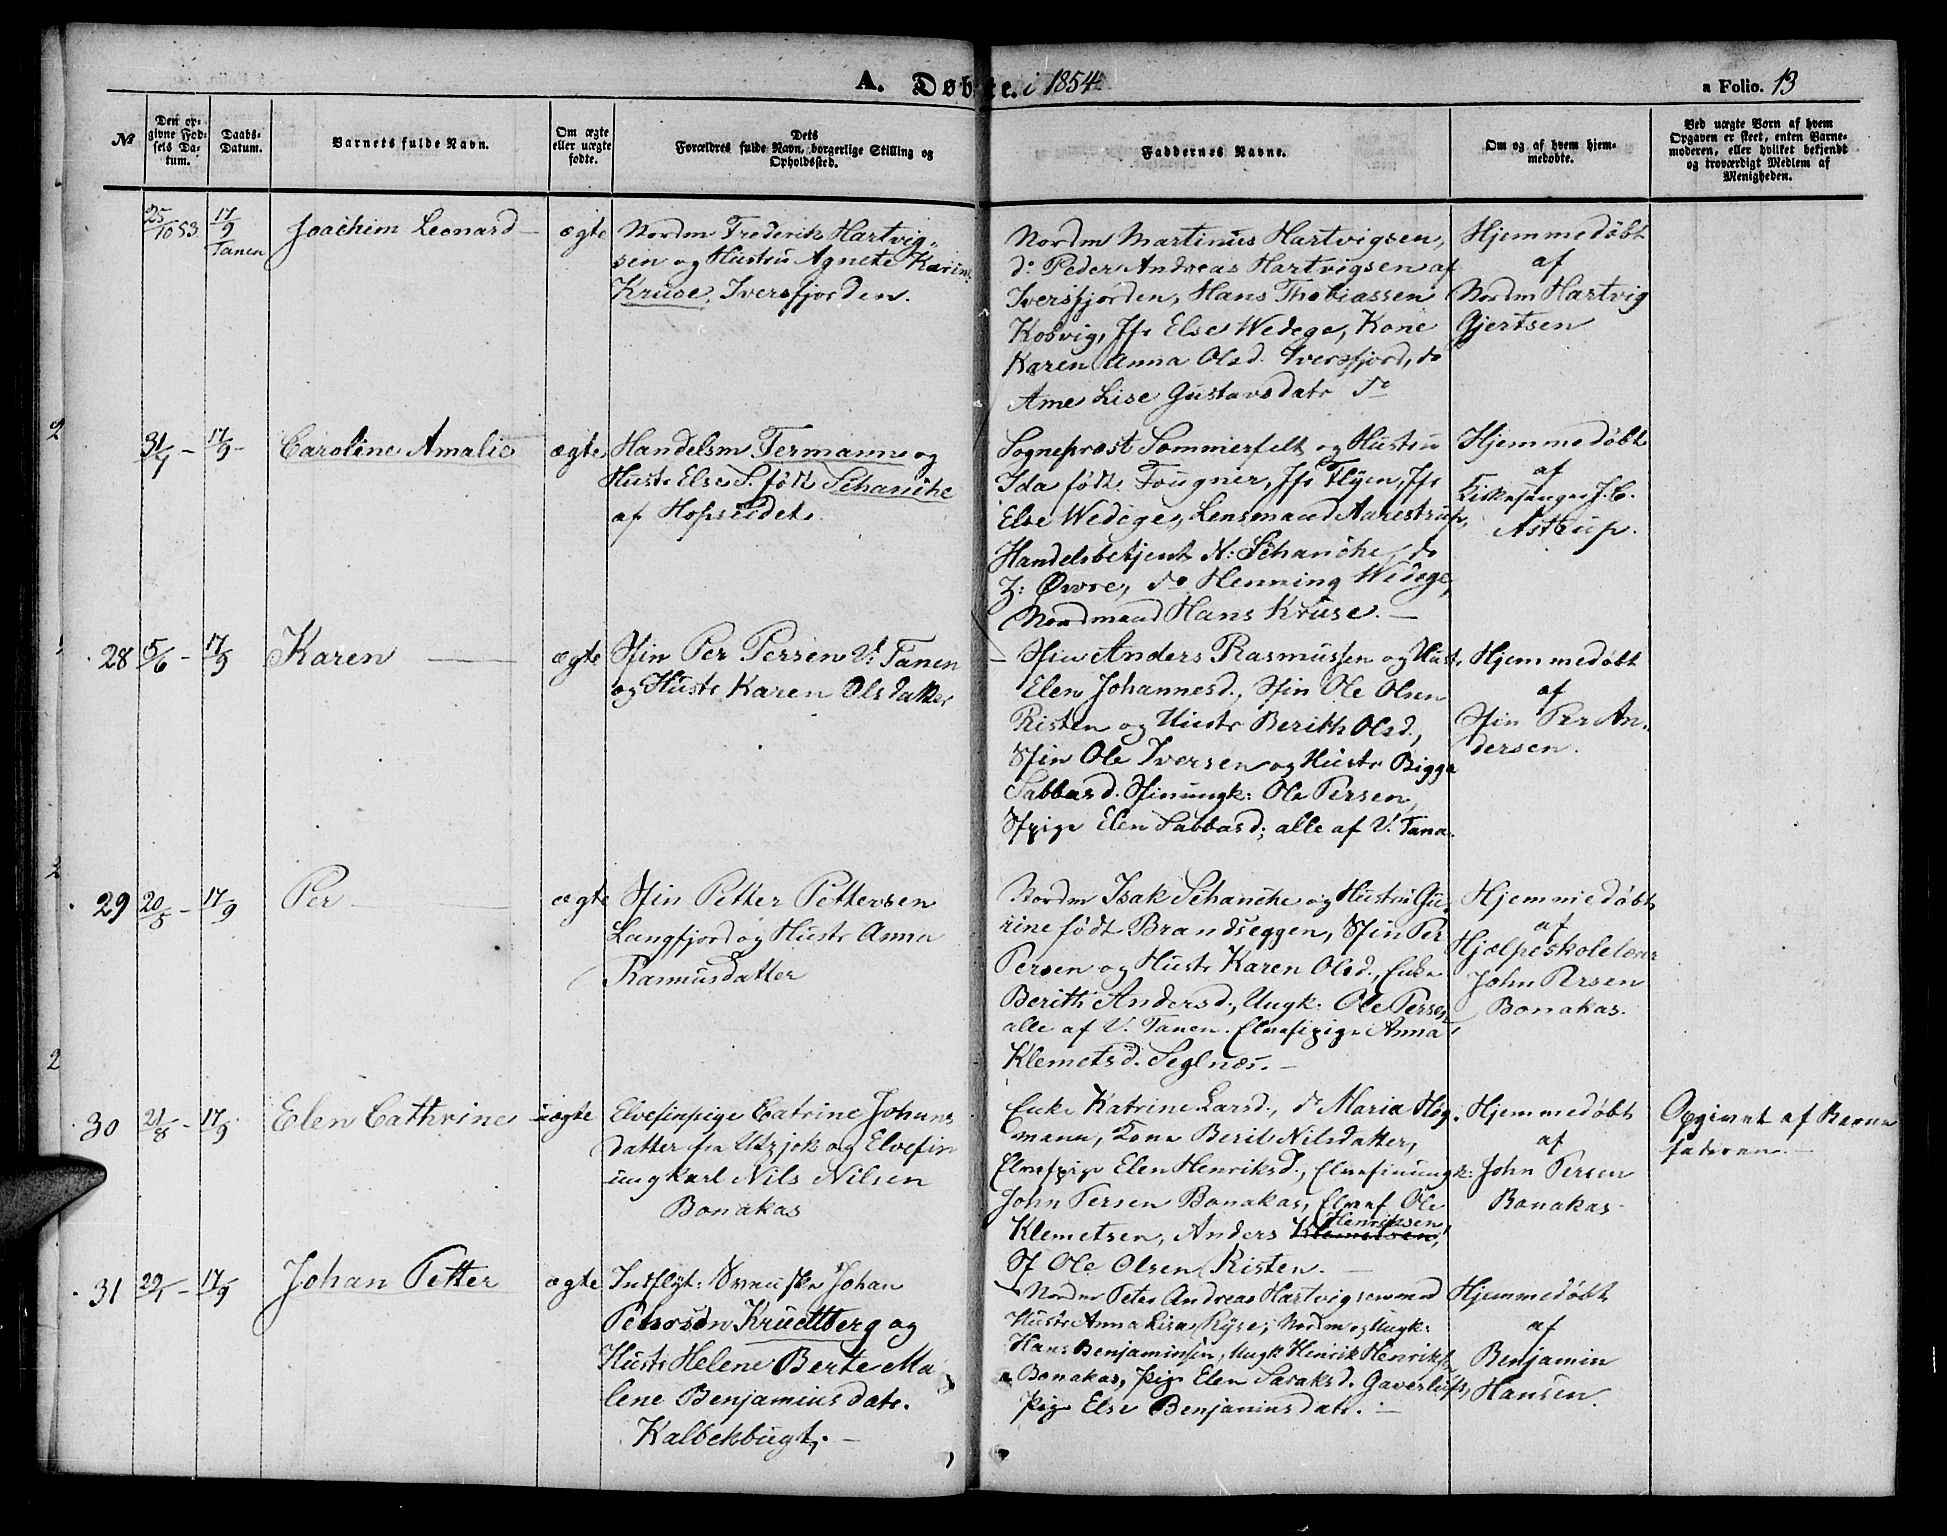 A. Døbte. i 1854.
a Folio. 13
No
Den op-
givne Fød-
sels Da-
tum.
Daabs-
Datum.
Barnets fulde Navn.
Om ægte
eller uægte
fødte.
Dets
Forældres fulde Navn, borgerlige Stilling og
Opholdssted.
Faddernes Navne.
Om og af hvem hjem-
medøbte.
Ved uægte Børn af hvem
Opgaven er skeet, enten Barne-
moderen, eller hvilket bekjendt
og troværdigt Medlem af
Menigheden.
25/10 53
17/9
Tanen
Joachim Leonard
ægte
Nordm Frederik Hartvig-
sen og Hustru Agnete Karine
Kruse, Iversfjorden.
Nordm Martinus Hartvigsen,
do Peder Andreas Hartvigsen af
Iversfjorden, Hans Thobiassen
Kobvig, Jfr Else Wedege, Kone
Karen Anna Olsd. Iversfjord, do
Ame Lise Gustavsdatr do
Hjemmedøbt
af
Nordm Hartvig
Gjertsen
31/7 -
17/9 -
Caroline Amalie
ægte
Handelsm Fermann og
Hustr Else S. født Schanche
af Hopseidet.
Sogneprøst Sommerfelt og Hustru
Ida født Fougner, Jfr Flyen, Jfr
Else Wedege, Lensmand Aarestrup,
Handelsbetjent N: Schanche, do
Z: Øwre, do Henning Wedege,
Nordmand Hans Kruse. -
Hjemmedøbt
af
Kirkesanger J. C.
Astrup.
28
5/6 -
17/9
Karen
ægte
Sfin Per Persen V. Tanen
og Hustr Karen Olsdatter
Sfin Anders Rasmussen og Hustr
Elen Johannesd., Sfin Ole Olsen
Risten og Hustr Berith Olsd.,
Sfin Ole Iversen og Hustr Bigga
Sabbasd. Sfinungk: Ole Persen,
Sfpige Elen Sabbasd; alle af V. Tana.
Hjemmedøbt
af
Sfin Per An-
dersen.
29
20/5 -
17/9
Per
ægte
Sfin Petter Pettersen
Langfjord og Hustr Anna
Rasmusdatter
Nordm Isak Schanche og Hustru Gu-
rine født Brandseggen, Sfin Per
Persen og Hustr Karen Olsd., Enke
Berith Andersd., Ungk: Ole Persen,
alle af V. Tanen. Elvefipige Anna
Klemetsd. Seglnæs. -
Hjemmedøbt
af
Hjælpeskolelærer
John Persen
Bonakas.
30
21/8 -
17/9
Elen Cathrine
uægte
Elvefinpige Catrine Johans
datter fra Utzjok og Elvefin
ungkarl Nils Nilsen
Bonakas
Enke Katrine Larsd., do Maria Høg-
mann, Kone Berit Nilsdatter,
Elvefpige Elen Henriksd., Elvefinungk:
John Persen Bonakas, Elvef Ole
Klemetsen, Anders Klemetsen, Henriksen,
Sf Ole Olsen Risten. -
Hjemmedøbt
af
John Persen
Bonakas
Opgivet af Barne
faderen. -
31
29/1 -
17/9
Johan Petter
ægte
Indflyt: Svensker Johan
Pehrsson Kruttberg og
Hustr Helene Berte Ma
lene Benjaminsdatr.
Kalbekbugt. -
Nordm Peter Andreas Hartvigsen med
Hustr Anna Lisa Kyse; Nordm og Ungk:
Hans Benjaminsen, Ungk Henrik Henriksen
Bonakas, Pige Elen Saraksd. Gaverluft,
Pige Else Benjaminsdatr. -
Hjemmedøbt
af
Benjamin
Hansen.